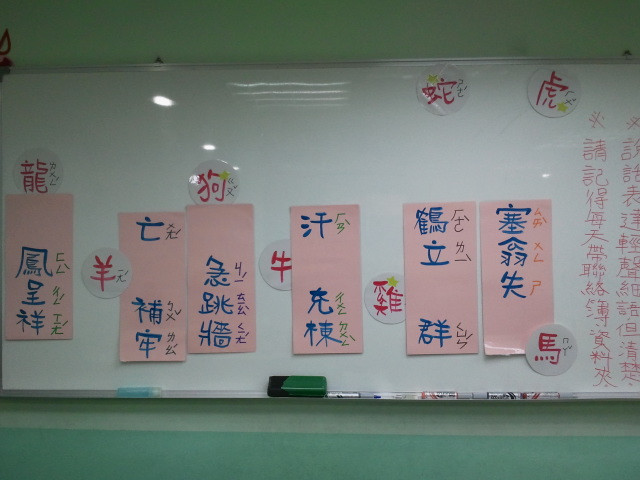 ※說話表達輕聲細語但清楚
※請記得每天帶聯絡簿資料夾
虎
蛇
塞翁失馬
鶴立雞群
汗牛充棟
狗急跳牆
亡羊補牢
龍鳳呈祥